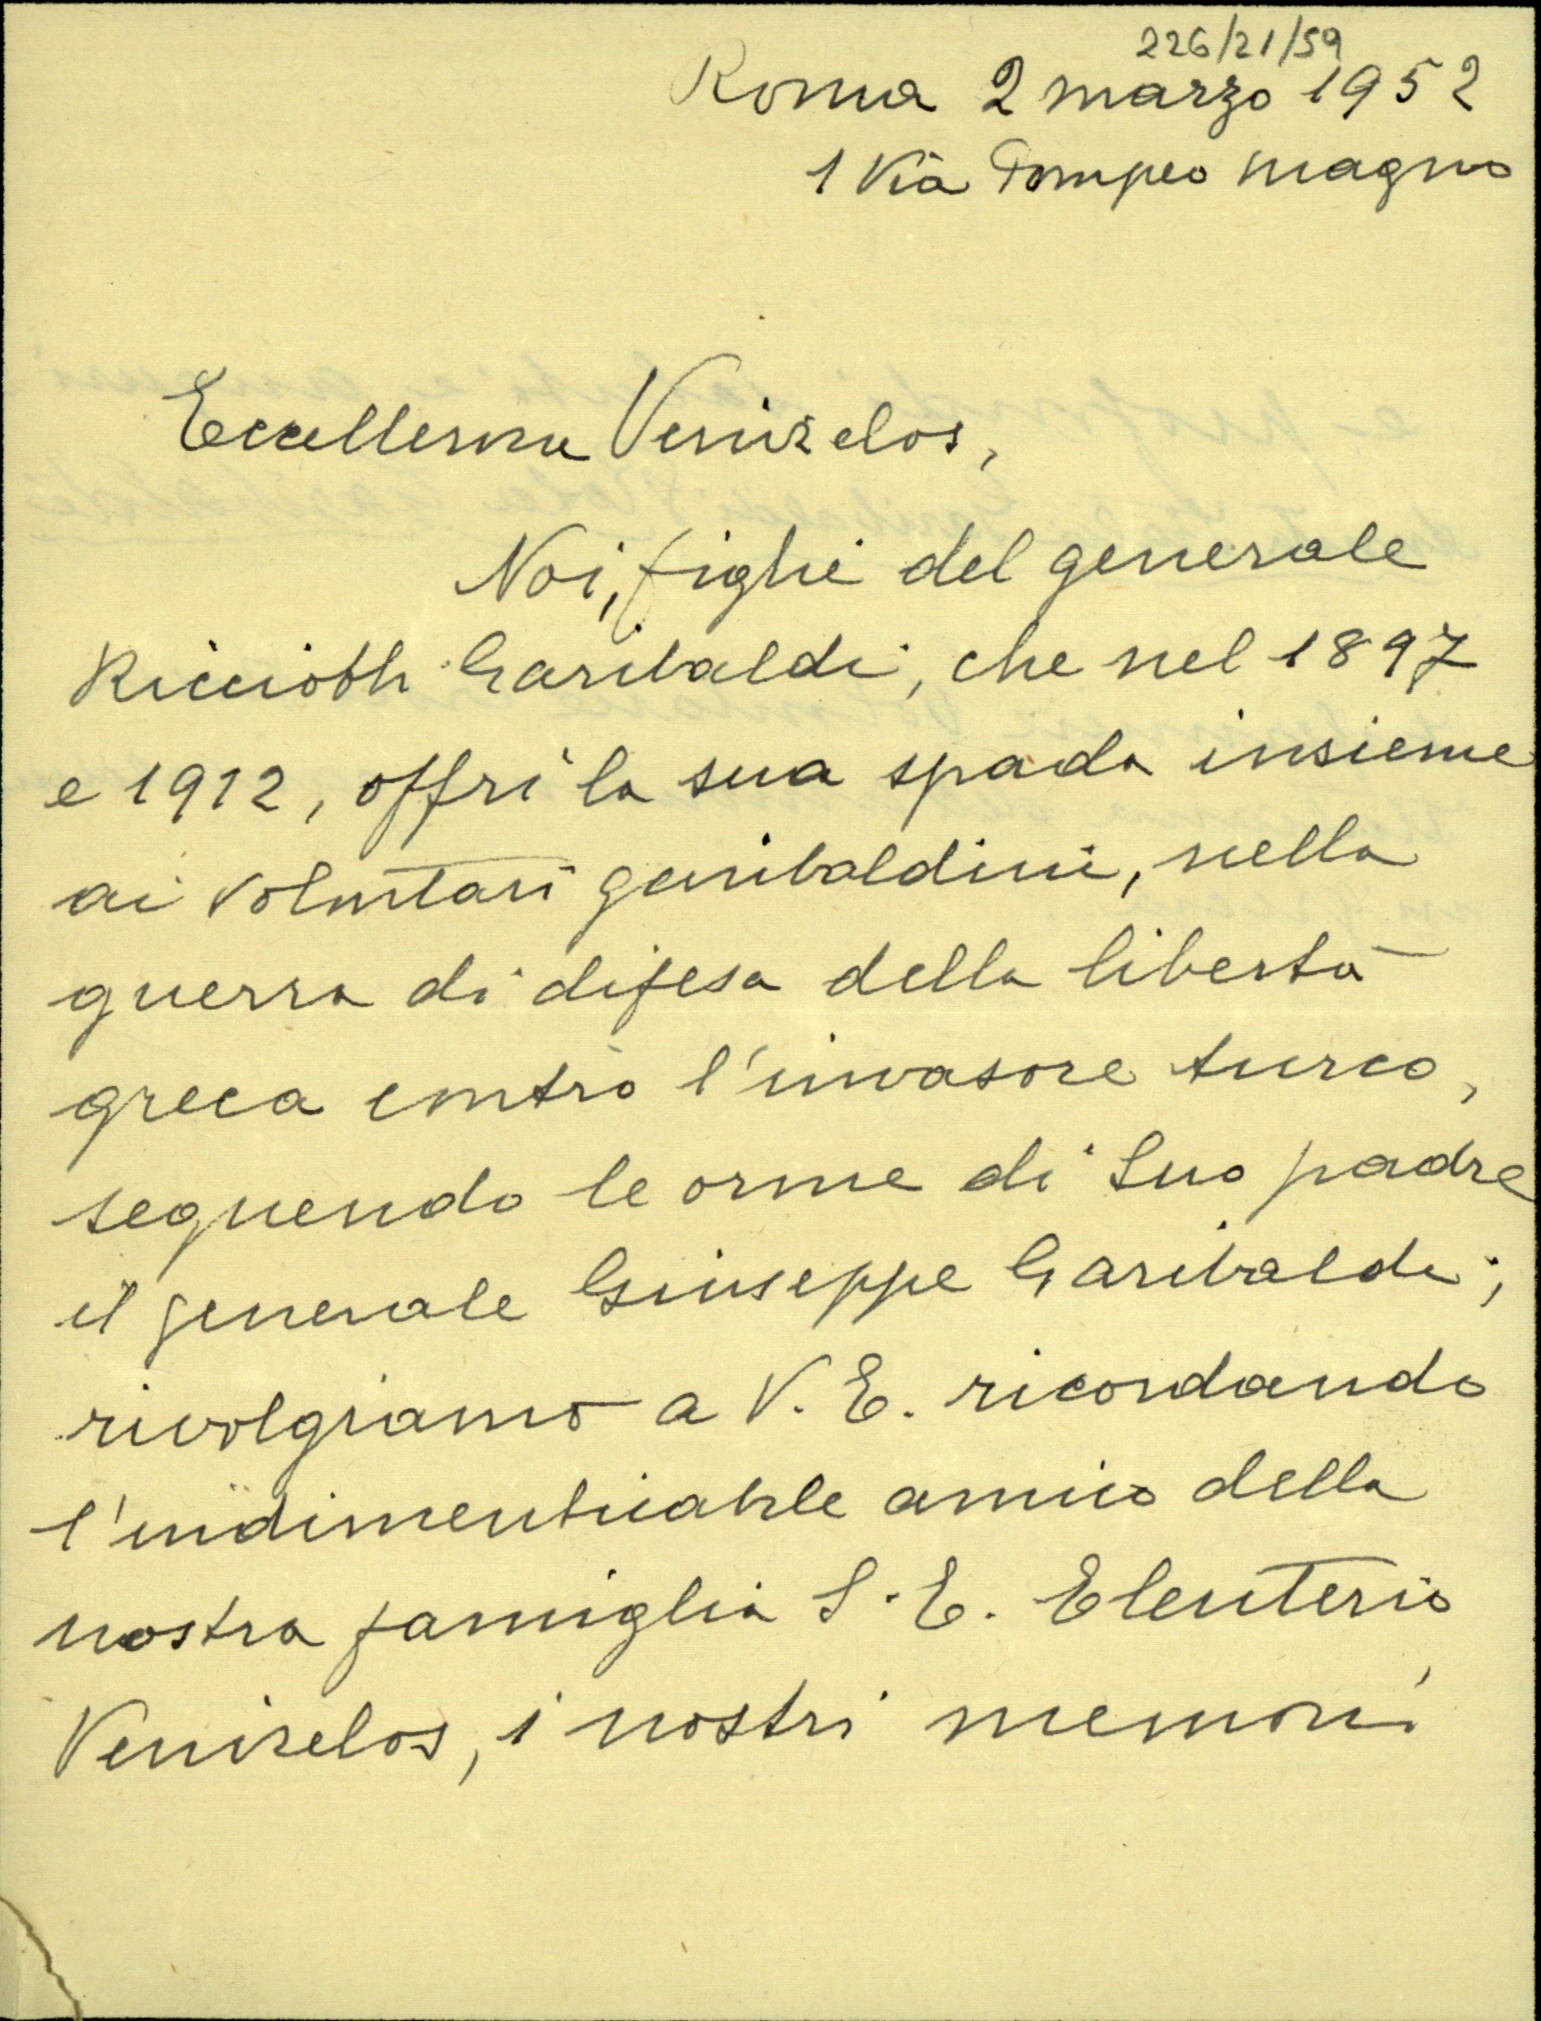 226/21/59
Roma 2 marzo 1952
1 Via Pompeo Magno
Eccellenza Venizelos,
Noi, figli del generale
Ricciotti Garibaldi, che nel 1897
e 1912, offrì la sua spada insieme
ai volontari garibaldini, nella
guerra di difesa della libertà
greca contro l'invasore turco,
seguendo le orme di Suo padre
il generale Giuseppe Garibaldi;
rivolgiamo a V. E. ricordando
l'indimenticabile amico della
nostra famiglia S. E. Eleuterio
Venizelos, i nostri memori